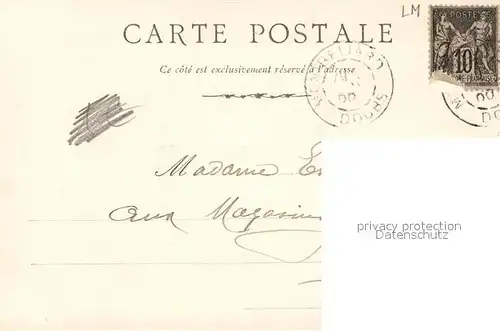 LM
CARTE POSTALE
Ce côté est exclusivement réservé à l'adresse
POSTE
10
DOUBS
00
DO
Madame
aux Magasins
privacy protection
Datenschutz